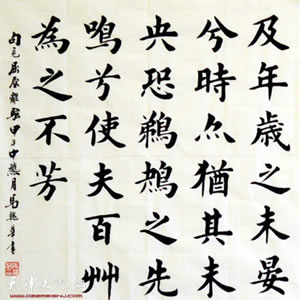 及年歲之未晏
兮時亦猶其未
央恐鵜鴂之先
鳴兮使夫百艸
為之不芳
屈原離騷甲子中
月馬
書
天津美术网